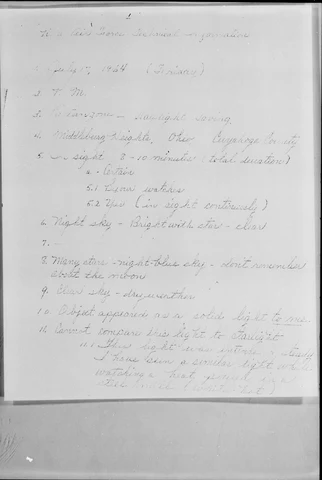 Air Force Technical Information
July 17, 1964 (Friday)
2. P.M.
3. daylight saving
4. Middleburg Heights, Ohio Cuyahoga County
5. In sight 8-10 minutes (total duration)
a. Certain
5.1 watch
5.2 Yes (in sight continously)
6. Night sky - Bright with stars - clear
7. -
8. Many stars - night-blue sky - don't remember
about the moon
9. Clear sky - dry weather
10. Object appeared as a solid light to me.
11. Cannot compare this light to starlight
11.1 This light was intense & steady
I have seen a similar light when
watching a heat